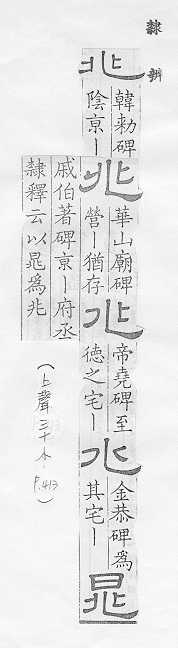 隸辨
兆
韓勑碑
陰亰丨
兆
華山廟碑
營丨猶存
兆
帝堯碑至
德之宅丨
兆
金恭碑為
其宅丨
晁
戚伯著碑亰丨府丞
隸釋云以晁為兆
(上聲三十小 P.413)